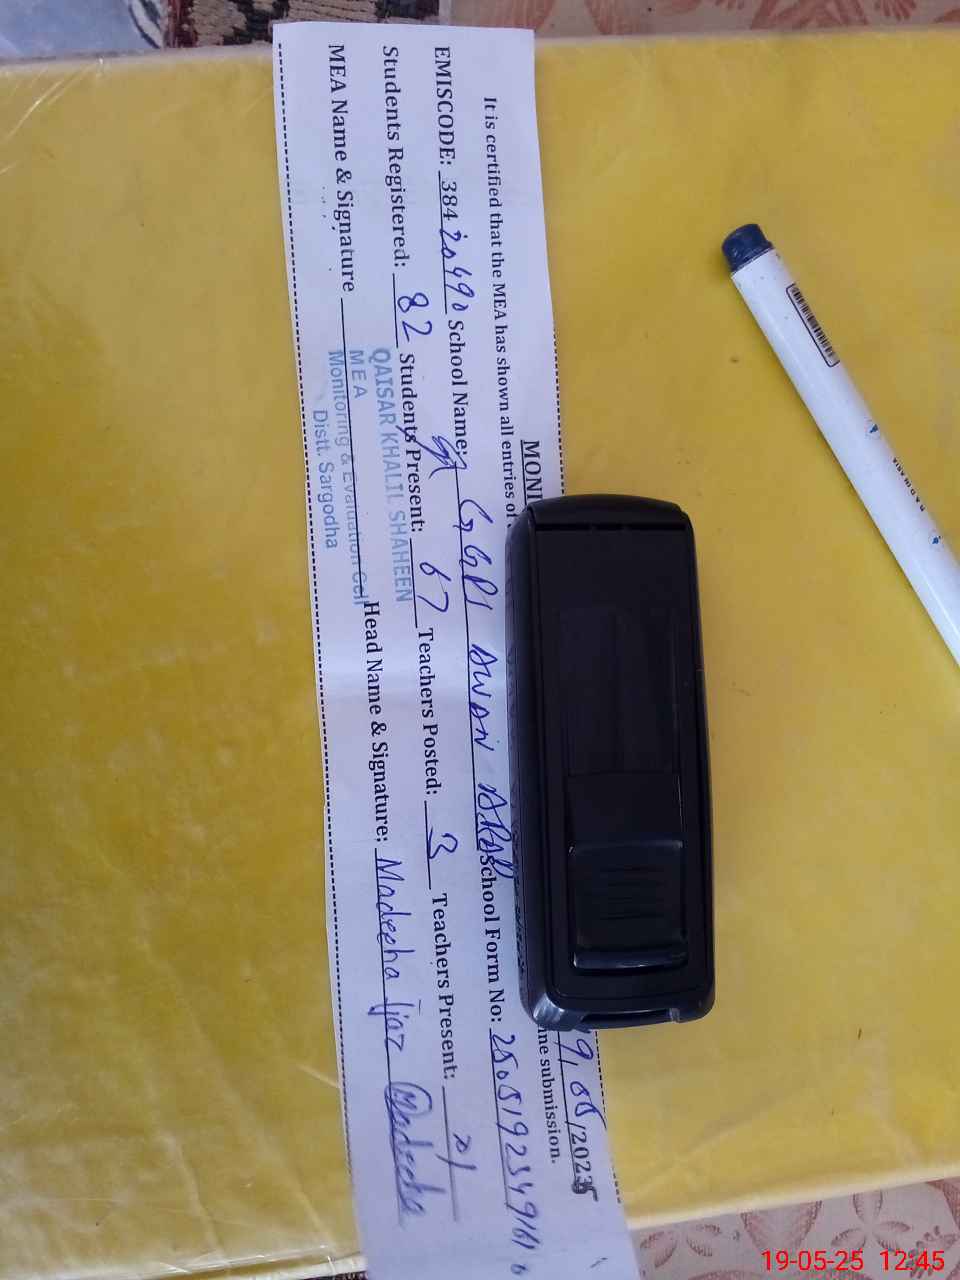 MONI 9,05/2025
It is certified that the MEA has shown all entries of ine submission.
EMISCODE: 38420490 School Name: GGPS AWAN ABAD School Form No:
Students Registered: 82 Students Present: 67 Teachers Posted: 3 Teachers Present:
MEA Name & Signature Head Name & Signature: Madeeha Ijaz Madeeha
QAISAR KHALIL SHAHEEN
MEA
Monitoring & Evaluation Cell
Distt. Sargodha
19-05-25 12:45